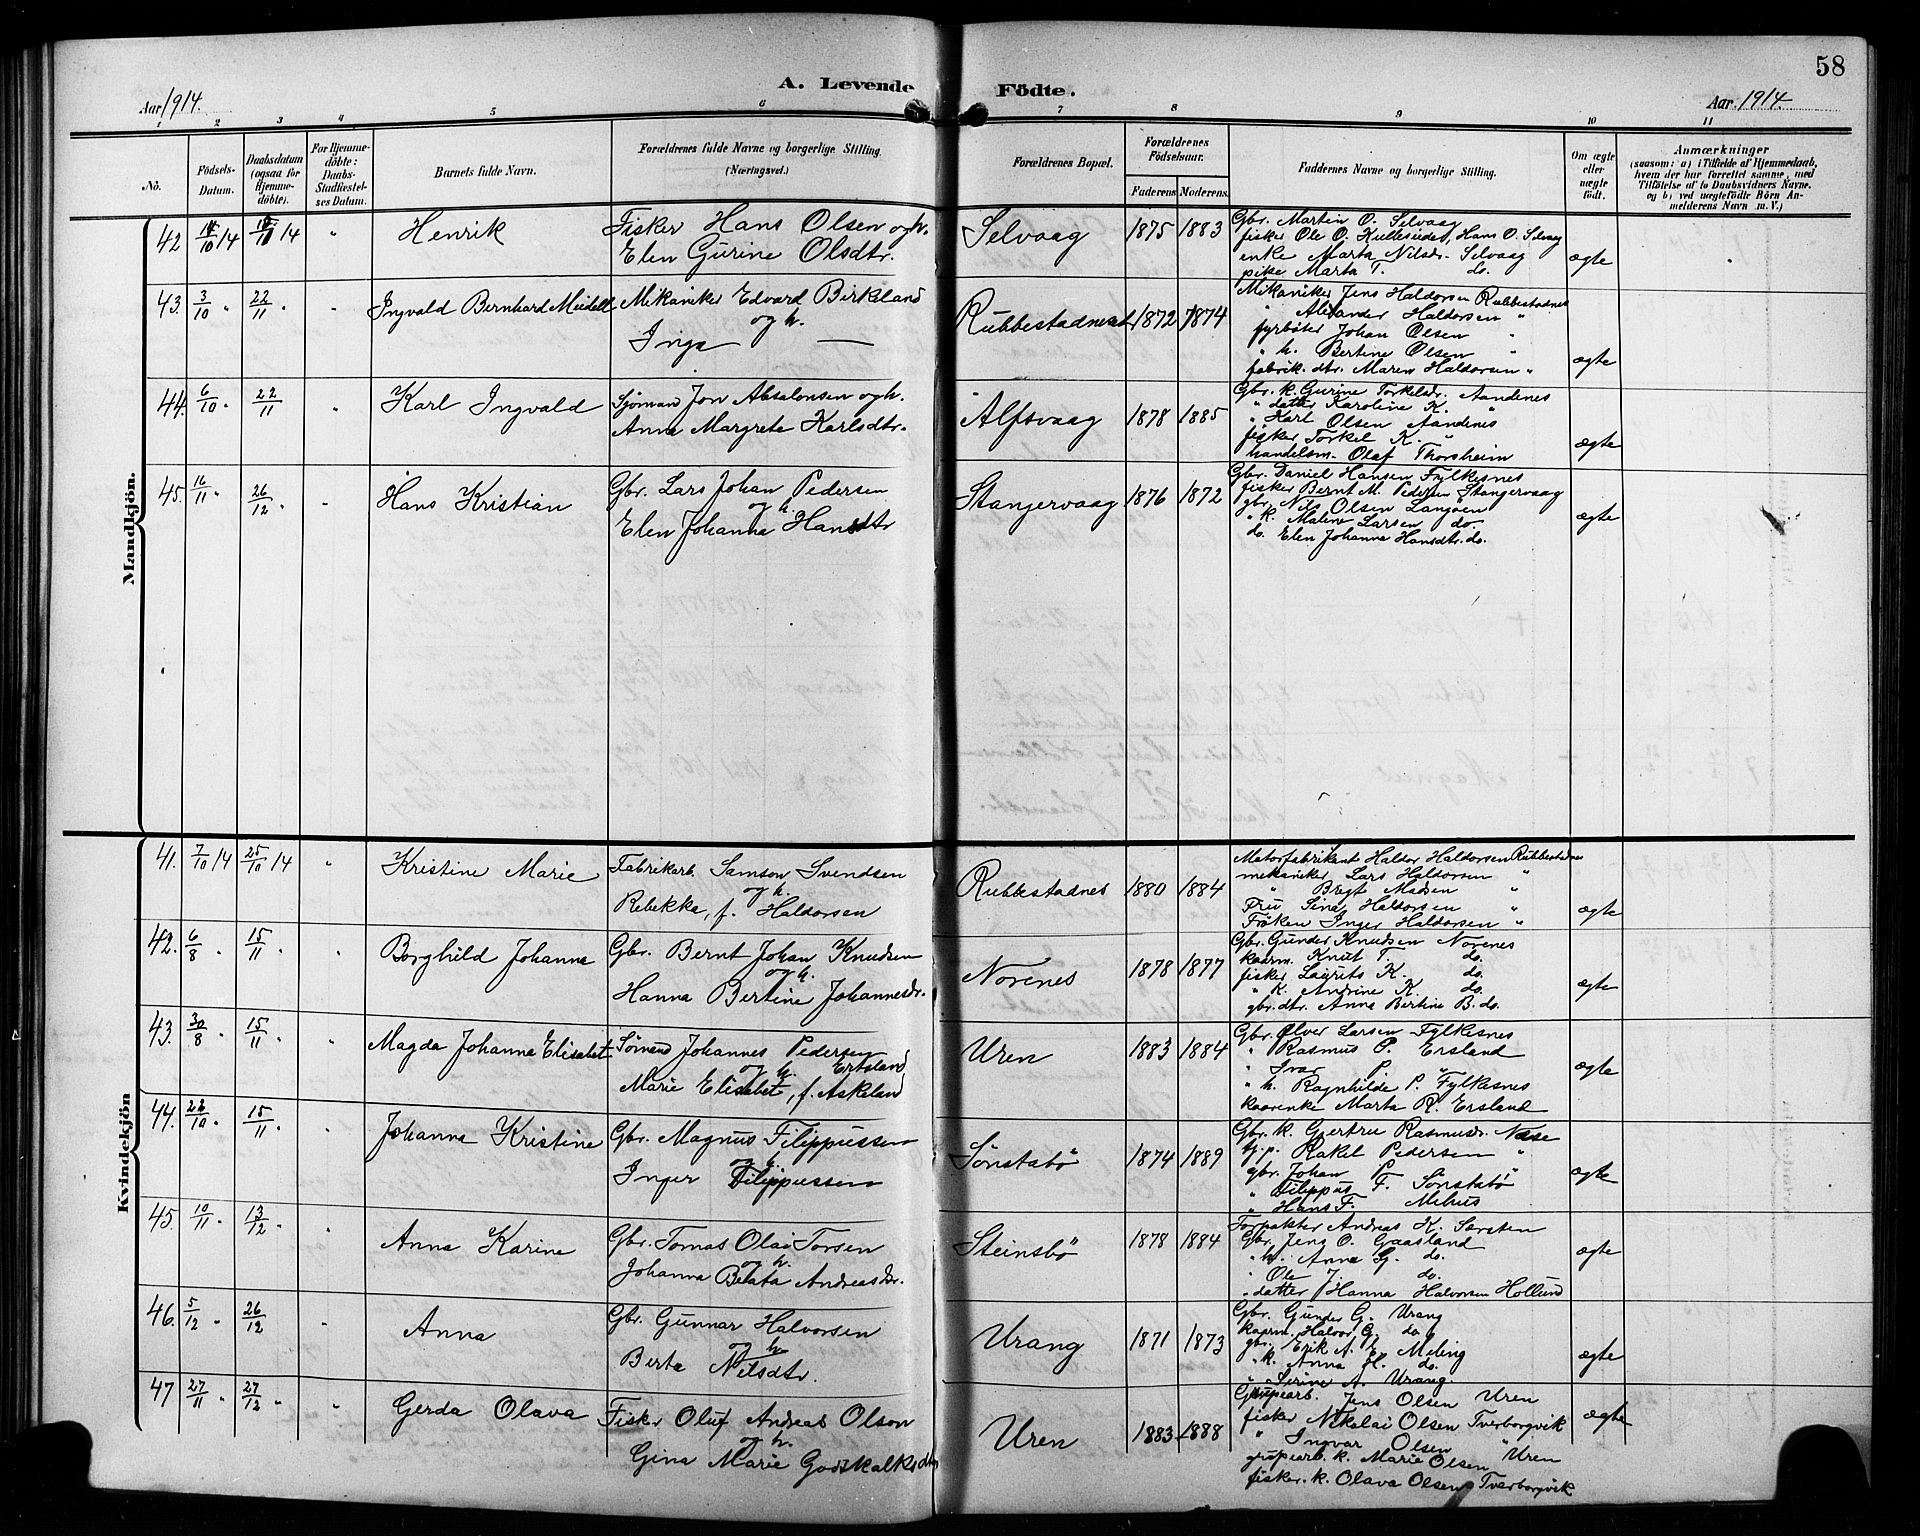 58
A. Levende Födte.
Aar 1914.
Aar 1914.
1 2 3 4 5 6 7 8 9 10 11
No.
Födsels-Datum.
Daabsdatum (ogsaa for Hjemme-döbte).
For Hjemme-döbte: Daabs-Stadfæstel-ses Datum.
Barnets fulde Navn.
Forældrenes fulde Navne og borgerlige Stilling. (Næringsvei.)
Forældrenes Bopæl.
Forældrenes Födselsaar.
Faderens. Moderens.
Faddernes Navne og borgerlige Stilling.
Om ægte eller uægte födt.
Anmærkninger
(saasom: a) i Tilfælde af Hjemmedaab,
hvem der har forrettet samme, med
Tilföielse af to Daabsvidners Navne.
og b) ved uægtefödte Börn An-
melderens Navn m. V.)
Mandkjön.
42 /10 14 /11 14 " Henrik
Fisker Hans Olsen og h.
Elen Gurine Olsdtr.
Selvaag 1875 1883
Gbr. Martin O. Selvaag
fisker Ole O. Kulleseidet, Hans O. Selvaag
enke Marta Nilsdr. Selvaag
pike Marta T. do.
ægte
43. 3/10 " 22/11 " " Ingvald Bernhard Meidell
Mikaniker Edvard Birkeland
og h.
Inga —
Rubbestadneset 1872 1874
Mikaniker Jens Haldorsen Rubbestadnes
" Alexander Haldorsen "
fyrbøter Johan Olsen "
" h. Bertine Olsen "
fabrik. dtr. Maren Haldorsen "
ægte
44. 6/10 " 22/11 " Karl Ingvald
Sjømand Jon Absalonsen og h.
Anna Margrete Karlsdtr.
Alfsvaag 1878 1885
Gbr. k. Gurine Torkelsdr. Aandenes
" datter Karoline K. "
" Karl Olsen Aandenes
fisker Torkel K. "
handelsm. Olaf Thorsheim
ægte
45. 16/11 " 26/12 " Hans Kristian
Gbr. Lars Johan Pedersen
og h.
Elen Johanna Hansdtr
Stangervaag 1876 1872
Gbr. Daniel Hansen Fylkesnes
fisker Bernt M. Pedersen Stangervaag
gbr. Nils Olsen Langøen
" k. Malene Larsen do.
do. Elen Johanna Hansdtr. do.
ægte
Kvindekjön
41. 7/10 14 25/10 14 " Kristine Marie
Fabrikarb. Samson Svendsen
og h.
Rebekka, f. Haldorsen
Rubbestadnes 1880 1884
Motorfabrikant Haldor Haldorsen Rubbestadnes
mekaniker Lars Haldorsen "
" Brigt Madsen "
Fru Sina Haldorsen "
Frøken Inger Haldorsen "
ægte
42. 6/8 " 15/11 " " Borghild Johanna
Gbr. Bernt Johan Knudsen
og h.
Hanna Bertine Johannesdr.
Norenes 1878 1877
Gbr. Gunder Knudsen Norenes
kaarm. Knut T. do.
fisker Laurits K. do.
" k. Andrine K. do.
gbr. dtr. Anna Bertine B. do.
ægte
43. 30/8 " 15/11 " " Magda Johanna Elisabet
Sømand Johannes Pedersen
og h. Ertsland
Marie Elisabet, f. Askeland
Uren 1883 1884
Gbr. Ølver Larsen Fylkesnes
" Rasmus P. Ersland
" Ivar P. "
" h. Ragnhilde P. Fylkesnes
kaarenke Marta R. Ersland
ægte
44. /10 " 15/11 " " Johanna Kristine
Gbr. Magnus Filippussen
og h.
Inger Filippussen
Sönstabö 1874 1889
Gbr. k. Gjertru Rasmusdr. Næse
tj. p. Rakel Pedersen "
gbr. Johan P. "
" Filippus F. Sönstabö
" Hans F. Mehus
ægte
45. 10/11 " 13/12 " " Anna Karine
Gbr. Tomas Olai Torsen
og h.
Johanna Beata Andreasdr.
Steinsbö 1878 1884
Forpakter Andreas K. Særsten
Gbr. Jens O. Gaasland
" h. Anna G. do.
" Ole J. do.
" datter Hanna Halvorsen Hollund
ægte
46. 5/12 " 26/12 " Anna
Gbr. Gunnar Halvorsen
og h.
Berta Nilsdtr.
Urang 1871 1873
Gbr. Gunder G. Urang
kaarm. Halvor G. do
gbr. Erik A. E. Meling
" k. Anna H. do.
" Serine A. Urang.
ægte
47 27/11 " 27/12 " " Gerda Olava
Fisker Oluf Andreas Olson
og h.
Gina Marie Godskalksdtr
Uren 1883 1888
Grupearb. Jens Olsen Uren
fisker Nikolai Olsen Tverborgvik
" Ingvar Olsen "
grupearb. k. Marie Olsen Uren
fisker. k. Olava Olsen Tverborgvik
ægte